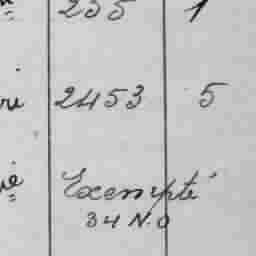 255 1
2453 5
Exempté
34 N.O